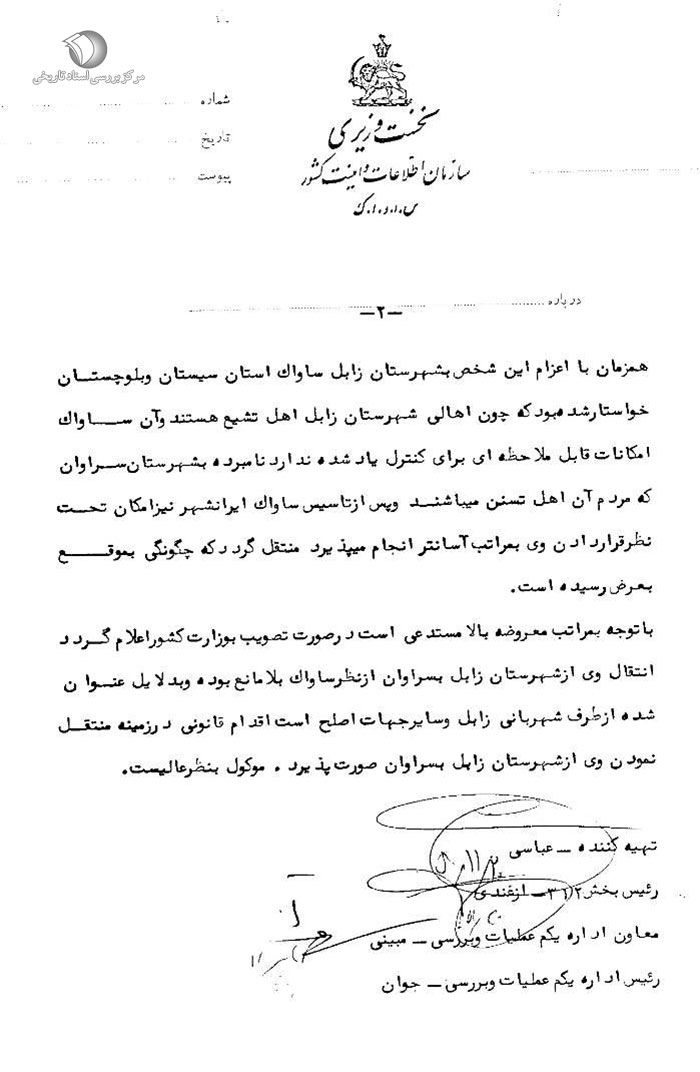 مرکز بررسی اسناد تاریخی
نخست وزیری
سازمان اطلاعات و امنیت کشور
س.ا.و.ا.ک
شماره
تاریخ
پیوست
درباره
-۲-
همزمان با اعزام این شخص بشهرستان زابل ساواك استان سیستان وبلوچستان
خواستارشده بود که چون اهالی شهرستان زابل اهل تشیع هستند وآن ساواك
امکانات قابل ملاحظه ای برای کنترل یاد شده ندارد نامبرده بشهرستان سراوان
که مردم آن اهل تسنن میباشند وپس ازتاسیس ساواك ایرانشهر نیزامکان تحت
نظرقراردادن وی بمراتب آسانتر انجام میپذیرد منتقل گردد که چگونگی بموقع
بعرض رسیده است.
باتوجه بمراتب معروضه بالا مستدعی است درصورت تصویب بوزارت کشوراعلام گردد
انتقال وی ازشهرستان زابل بسراوان ازنظرساواك بلامانع بوده وبدلایل عنوان
شده ازطرف شهربانی زابل وسایرجهات اصلح است اقدام قانونی درزمینه منتقل
نمودن وی ازشهرستان زابل بسراوان صورت پذیرد . موکول بنظرعالیست.
تهیه کننده - عباسی
رئیس بخش ۳۱۲ - ازغندی
معاون اداره یکم عملیات وبررسی - مبینی
رئیس اداره یکم عملیات وبررسی - جوان